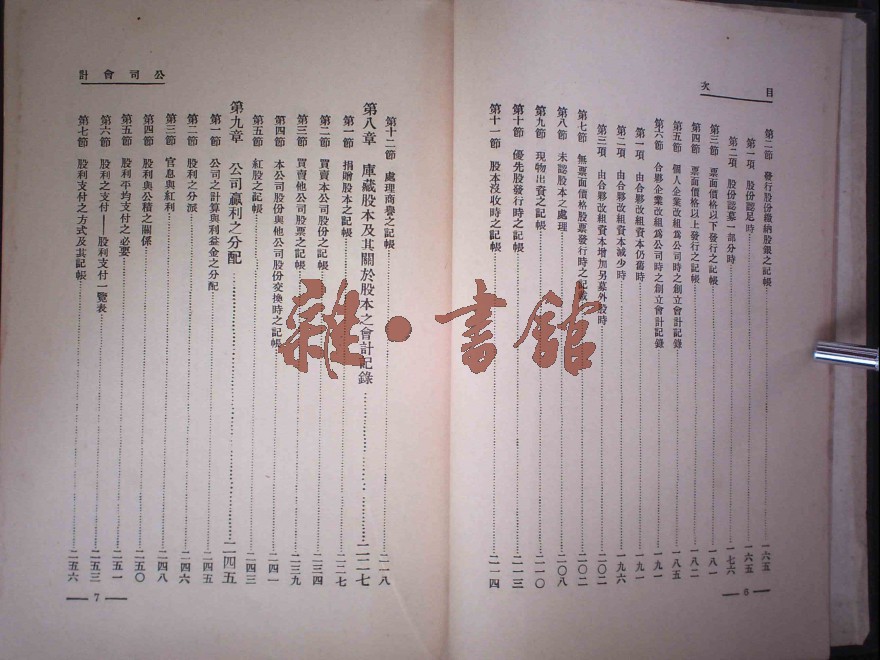 目次
第二節 發行股份繳納股銀之記帳 一六五
第一項 股份認足時 一六五
第二項 股份認募一部分時 一七六
第三節 票面價格以下發行之記帳 一八一
第四節 票面價格以上發行之記帳 一八二
第五節 個人企業改組為公司時之創立會計記錄 一八五
第六節 合夥企業改組為公司時之創立會計記錄 一九一
第一項 由合夥改組資本仍舊時 一九一
第二項 由合夥改組資本減少時 一九六
第三項 由合夥改組資本增加另募外股時 二〇二
第七節 無票面價格股票發行時之記載 二〇二
第八節 未認股本之處理 二〇八
第九節 現物出資之記帳 二一〇
第十節 優先股發行時之記帳 二一三
第十一節 股本沒收時之記帳 二一四
6
公司會計
第十二節 處理商譽之記帳 二一八
第八章 庫藏股本及其關於股本之會計記錄 二二七
第一節 捐贈股本之記帳 二二七
第二節 買賣本公司股份之記帳 二三四
第三節 買賣他公司股票之記帳 二三九
第四節 本公司股份與他公司股份交換時之記帳 二四一
第五節 紅股之記帳 二四三
第九章 公司贏利之分配 二四五
第一節 公司之計算與利益金之分配 二四五
第二節 股利之分派 二四六
第三節 官息與紅利 二四八
第四節 股利與公積之關係 二五〇
第五節 股利平均支付之必要 二五一
第六節 股利之支付——股利支付一覽表 二五三
第七節 股利支付之方式及其記帳 二五六
7
雜·書館